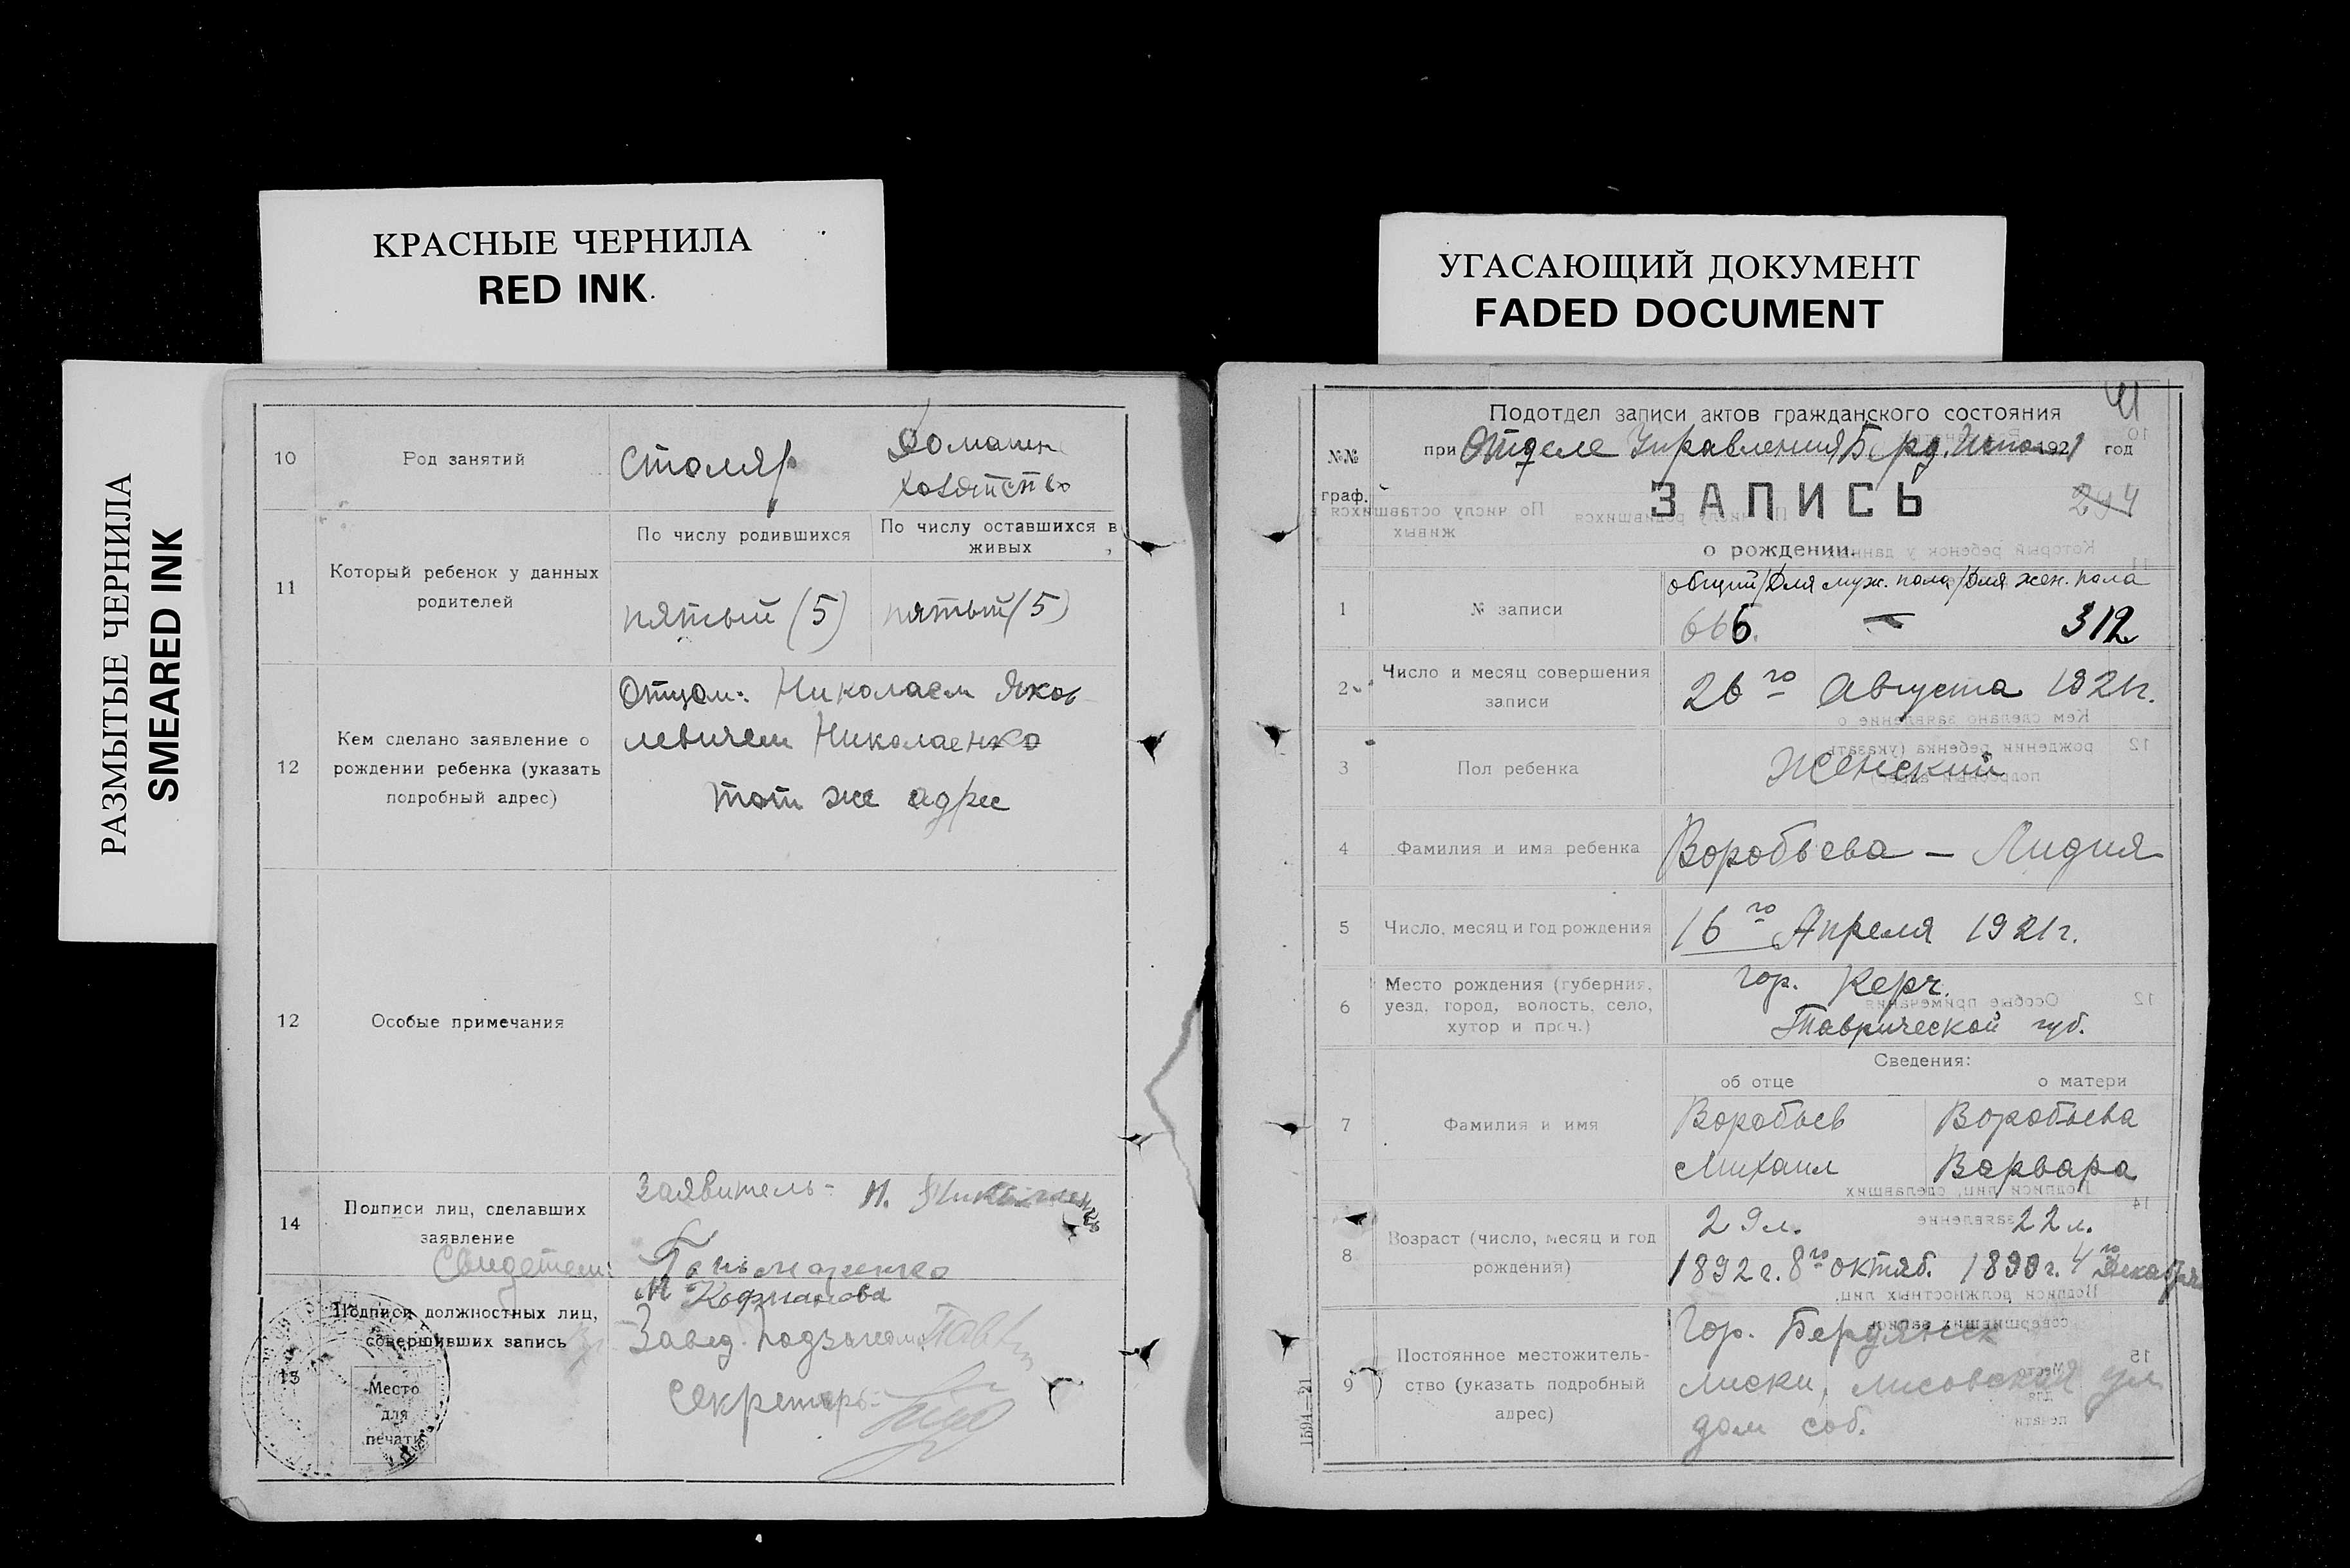 КРАСНЫЕ ЧЕРНИЛА
RED INK
РАЗМЫТЫЕ ЧЕРНИЛА
SMEARED INK
10 Род занятий
Столяр
Домашн
хозяйство
11 Который ребенок у данных
родителей
По числу родившихся
По числу оставшихся в
живых
пятый (5)
пятый (5)
12 Кем сделано заявление о
рождении ребенка (указать
подробный адрес)
Отцом: Николаем Яков
левичем Николаенко
тот же адрес
12 Особые примечания
14 Подписи лиц, сделавших
заявление
Заявитель- Н.
Свидетели:
М
Подписи должностных лиц,
совершивших запись
Завед. Подъотделом
Секретарь:
Место
для
печати
УГАСАЮЩИЙ ДОКУМЕНТ
FADED DOCUMENT
41
Подотдел записи актов гражданского состояния
при Отделе Управления Берд. 1921 год
№№
граф.
ЗАПИСЬ
294
о рождении.
общий/Для муж. пола/Для жен. пола
1 № записи
666. — 312
2 Число и месяц совершения
записи
26го Августа 1921г.
3 Пол ребенка
Женский
4 Фамилия и имя ребенка
Воробьева — Лидия
5 Число, месяц и год рождения
16го Апреля 1921г.
6 Место рождения (губерния,
уезд, город, волость, село,
хутор и проч.)
гор. Керч.
Таврической губ.
Сведения:
об отце
о матери
7 Фамилия и имя
Воробьев
Михаил
Воробьева
Варвара
8 Возраст (число, месяц и год
рождения)
29л.
22л.
1892г. 8го октяб.
4го Декабря
9 Постоянное местожитель-
ство (указать подробный
адрес)
Гор. Бердянск
Лиски, Лисовская ул
дом соб.
1594—21